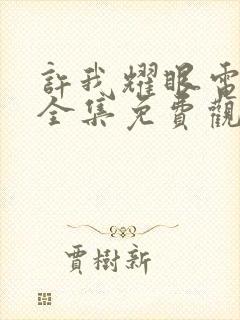 許我耀眼電
全集免費觀
賈樹新